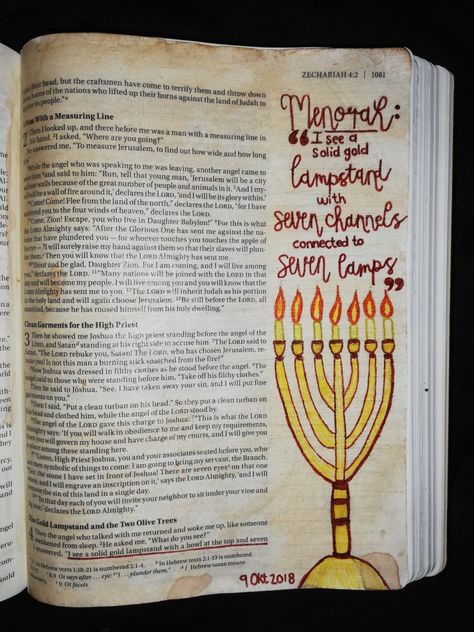 ZECHARIAH 4:2 | 1081
their head, but the craftsmen have come to terrify them and throw down
horns of the nations who lifted up their horns against the land of Judah to
its people."
Man With a Measuring Line
Then I looked up, and there before me was a man with a measuring line in
his hand. I asked, "Where are you going?"
He answered me, "To measure Jerusalem, to find out how wide and how long
While the angel who was speaking to me was leaving, another angel came to
him and said to him: "Run, tell that young man, 'Jerusalem will be a city
without walls because of the great number of people and animals in it. And I my-
self will be a wall of fire around it,' declares the LORD, 'and I will be its glory within.'
"Come! Come! Flee from the land of the north," declares the LORD, "for I have
scattered you to the four winds of heaven," declares the LORD.
"Come, Zion! Escape, you who live in Daughter Babylon!" For this is what
the LORD Almighty says: "After the Glorious One has sent me against the na-
tions that have plundered you — for whoever touches you touches the apple of
his eye — I will surely raise my hand against them so that their slaves will plun-
der them. Then you will know that the LORD Almighty has sent me.
"Shout and be glad, Daughter Zion. For I am coming, and I will live among
you," declares the LORD. 11 "Many nations will be joined with the LORD in that
day and will become my people. I will live among you and you will know that the
LORD Almighty has sent me to you. 12 The LORD will inherit Judah as his portion
in the holy land and will again choose Jerusalem. 13 Be still before the LORD, all
mankind, because he has roused himself from his holy dwelling."
Clean Garments for the High Priest
3 Then he showed me Joshua the high priest standing before the angel of the
LORD, and Satan standing at his right side to accuse him. 2 The LORD said to
Satan, "The LORD rebuke you, Satan! The LORD, who has chosen Jerusalem, re-
buke you! Is not this man a burning stick snatched from the fire?"
3 Now Joshua was dressed in filthy clothes as he stood before the angel. 4 The
angel said to those who were standing before him, "Take off his filthy clothes."
Then he said to Joshua, "See, I have taken away your sin, and I will put fine
garments on you."
5 Then I said, "Put a clean turban on his head." So they put a clean turban on
his head and clothed him, while the angel of the LORD stood by.
6 The angel of the LORD gave this charge to Joshua: 7 "This is what the LORD
Almighty says: 'If you will walk in obedience to me and keep my requirements,
you will govern my house and have charge of my courts, and I will give you
a place among these standing here.
"'Listen, High Priest Joshua, you and your associates seated before you, who
are men symbolic of things to come: I am going to bring my servant, the Branch.
See, the stone I have set in front of Joshua! There are seven eyes on that one
stone, and I will engrave an inscription on it,' says the LORD Almighty, 'and I will
remove the sin of this land in a single day.
"'In that day each of you will invite your neighbor to sit under your vine and
fig tree,' declares the LORD Almighty."
The Gold Lampstand and the Two Olive Trees
4 Then the angel who talked with me returned and woke me up, like someone
awakened from sleep. 2 He asked me, "What do you see?"
I answered, "I see a solid gold lampstand with a bowl at the top and seven
In Hebrew texts 1:18-21 is numbered 2:1-4. In Hebrew texts 2:1-13 is numbered
8,9 Or says after . . . eye: 9 "I . . . plunder them." 1 Hebrew satan means
9 Or facets
Menorah:
"I see a
solid gold
lampstand
with
seven channels
connected to
seven lamps"
9 Okt 2018